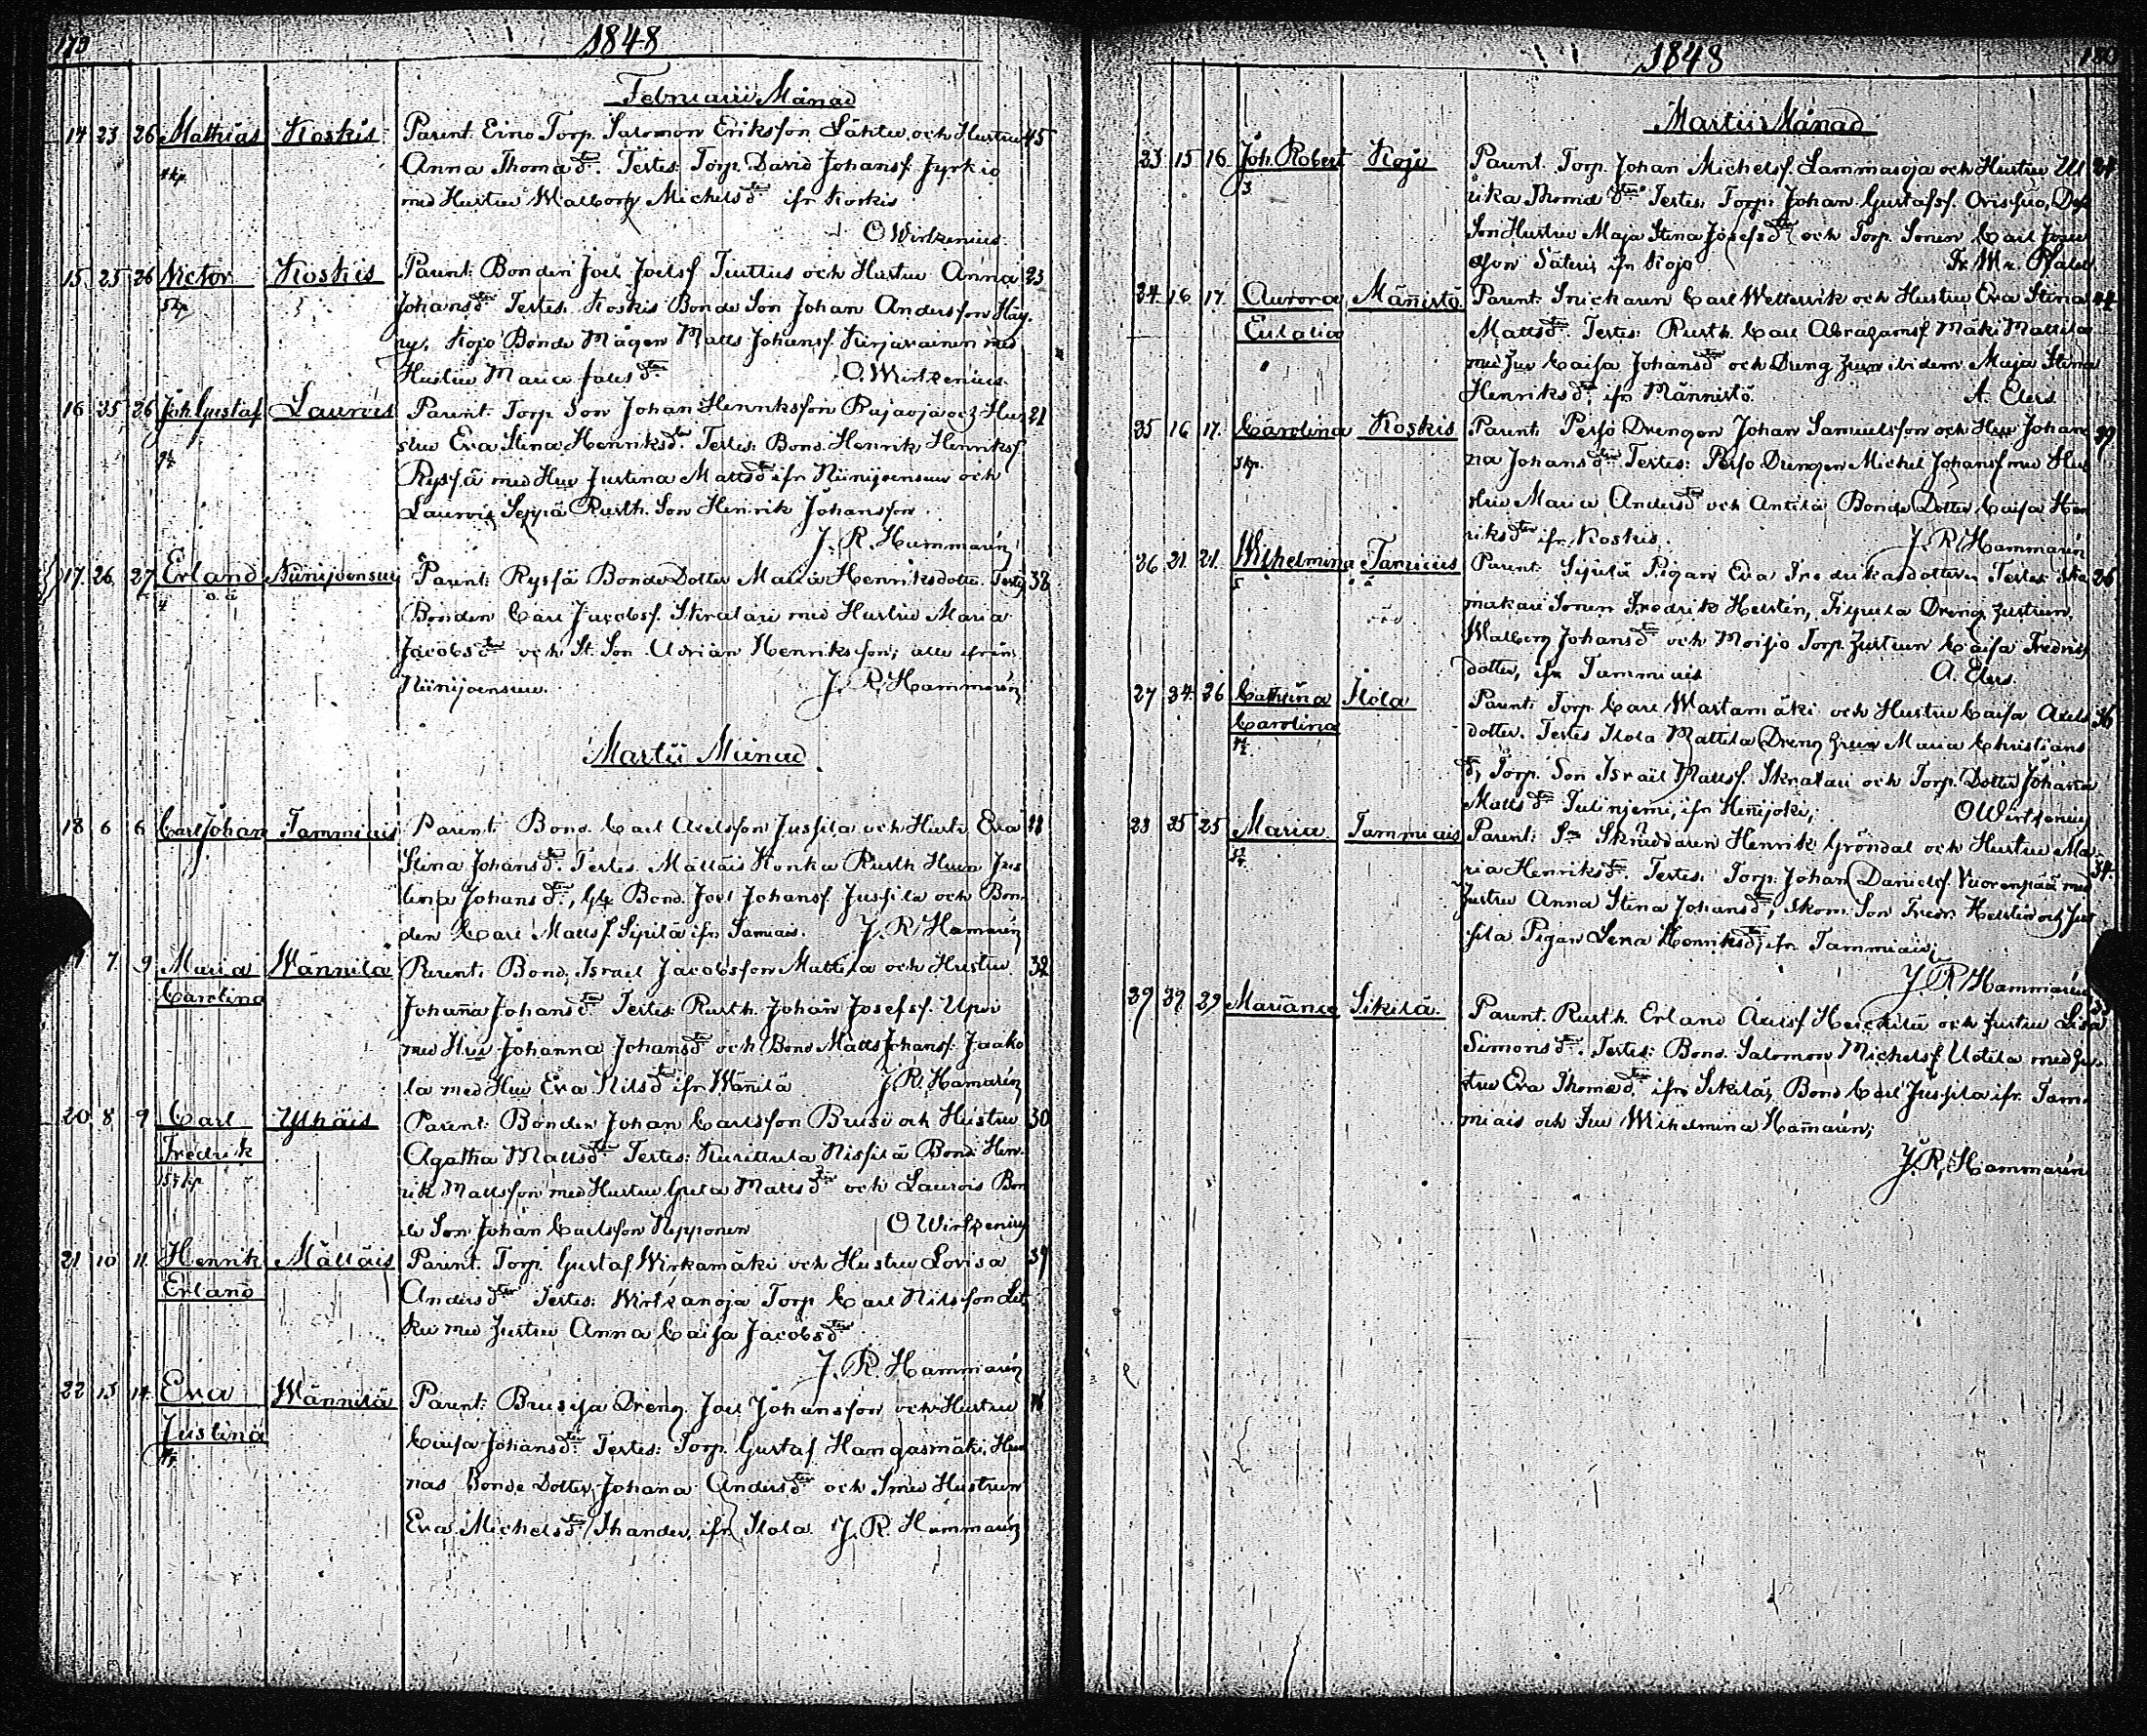 179
1848
Februarii Månad
14 23 26 Mathias Koskis Parent. Eino Torp. Salomon Eriksson Lähte och Hustru 45
Anna Thomasdter. Testes: Torp. David Johansf. Jyrkiö
med Hustru Walborg Michelsdter ifr Koskis
O Wirtzenius
15 25 26 Victor Koskis Parent: Bonden Joel Joelsf. Turttus och Hustru Anna 23
Johansdter Testes. Koskis Bonde Son Johan Andersson
Kojo Bonde Mågen Matts Johansf. Kirjavainen med
Hustru Maria
O. Wirtzenius.
16 25 26 Joh. Gustaf Laurois Parent. Torp. Son Johan Henriksson Rajaoja och Hu 21
stru Eva Stina Henriksdter Testes: Bond. Henrik Henriksf.
Ryssä med Hru Justina Mattsdter ifr Niinijoensuu och
Laurois Seppä Rusth. Son Henrik Johansson.
J. R. Hammarén
17. 26. 27 Erland Niinijoensuu Parent: Ryssä Bonde Dotter Maria Henriksdotter. Testes 38
4
Bonden Carl Jacobsf. Skratari med Hustru Maria
Jacobsdter och St. Son Adrian Henriksson, alle ifrån
Niinijoensuu. J. R. Hammarén
Martii Månad
18 6 6 Carl Johan Tammiais Parent: Bond. Carl Axelsson Jussila och Hustr. Eva
Stina Johansdter. Testes. Mälläis Honka Rusth Hrun Jus
tina Johansdter, Bond. Joel Johansf. Jussila och Bon
den Carl Mattsf. Sipilä ifr Tamiais. J. R. Hamarén
7 9 Maria Wännilä Parent: Bond. Israel Jacobsson Mattila och Hustru 32
Carolina Johanna Johansdter Testes Rusth. Johan Josefsf. Upoi
med Hru Johanna Johansdter och Bond Matts Johansf. Jaako
la med Hru Eva Nilsdter ifr Wännilä J. R. Hamarén
20 8 9 Carl Ylhäis Parent: Bonden Johan Carlsson Brusi och Hustru 30
Fredrik Agatha Mattsdter Testes: Kurittula Nissilä Bond. Hen
rik Mattsson med Hustru Greta Mattsdter och Laurois Bon
de Son Johan Carlsson Nepponen O Wirtzenius
21 10 11 Henrik Mälläis Parent. Torp. Gustaf Wirkamäki och Hustru Lovisa 39
Erland Andersdter Testes: Wirkanoja Torp Carl Nilsson
med Hustru Anna Caisa Jacobsdter
J. R. Hammarén
22 13 14 Eva Wännilä Parent: Brusija Dreng. Joel Johansson och Hustru
Justina Caisa Johansdter Testes: Torp. Gustaf Hangasmäki,
nas Bonde Dotter Johana Andersdter och Smed Hustrun
Eva Michelsdter Thander, ifr Ilola J. R. Hammarén
1848
180
Martii Månad
23 15 16 Joh. Robert Kojo Parent. Torp. Johan Michelsf. Lammasoja och Hustru Ul 24
3
rika Thomasdter Testes. Torp. Johan Gustafsf.
Son Hustru Maja Stina Josefsdter och Torp. Sonen Carl Jose
fson Säteri, ifr Kojo Fr. Wr.
24 16 17 Aurora Männistö Parent: Snickaren Carl Wettervik och Hustru Eva Stina 44
Eulalia Mattsdter. Testes: Rusth. Carl Abrahamsf. Mäki Mattila
med Hru Caisa Johansdter och Dreng Hrun ibidem Maja Stina
Henriksdter. ifr Männistö. A. Elers
25 16 17. Carolina Koskis Parent: Perjo Drengen Johan Samuelsson och Hru Johan 39
na Johansdter Testes: Perjo Drengen Michel Johansf med Hu
stru Maria Andersdter och Antila Bonde Dotter Caisa Hen
riksdter ifr Koskis. J. R. Hammarén
26 21 21 Wilhelmina Tamiais Parent: Sipilä Pigan Eva Fredriksdotter Testes Sko 26
5
makare Sonen Fredrik Hellstén, Sipilä Dreng Hustrun
Walborg Johansdter och Moisio Torp. Hustrun Caisa Fredriks
dotter, ifr Tammiais A. Elers.
27 24 26 Cathrina Ilola Parent: Torp. Carl Wartamäki och Hustru Caisa Axels 36
Carolina dotter. Testes Ilola Mattila Dreng Hrun Maria Christians
d, Torp. Son Israel Mattsf. Skratari och Torp. Dotter Johanna
Mattsdter Tulinjemi, ifr Hinnijoki, O Wirtzenius
28 25 25 Maria Tammiais Parent: Sn Skräddaren Henrik Gröndal och Hustru Ma
ria Henriksdter. Testes. Torp. Johan Danielsf. Vuorenpää med 34
Hustru Anna Stina Johansdter, Skom. Son Fredr. Hellstén och Jus
sila Pigan Lena Henriksdter, ifr Tammiais.
J. R. Hammarén
29 27 29 Mariana Sikilä. Parent. Rusth. Erland Axelsf Heickilä och Hustru Lisa
Simonsdter. Testes: Bond. Salomon Michelsf. Uotila med Hu
stru Eva Thomasdter ifr Sikilä, Bond Carl Jussila ifr Tam
miais och Fru Wilhelmina Hamarén;
J. R. Hammarén